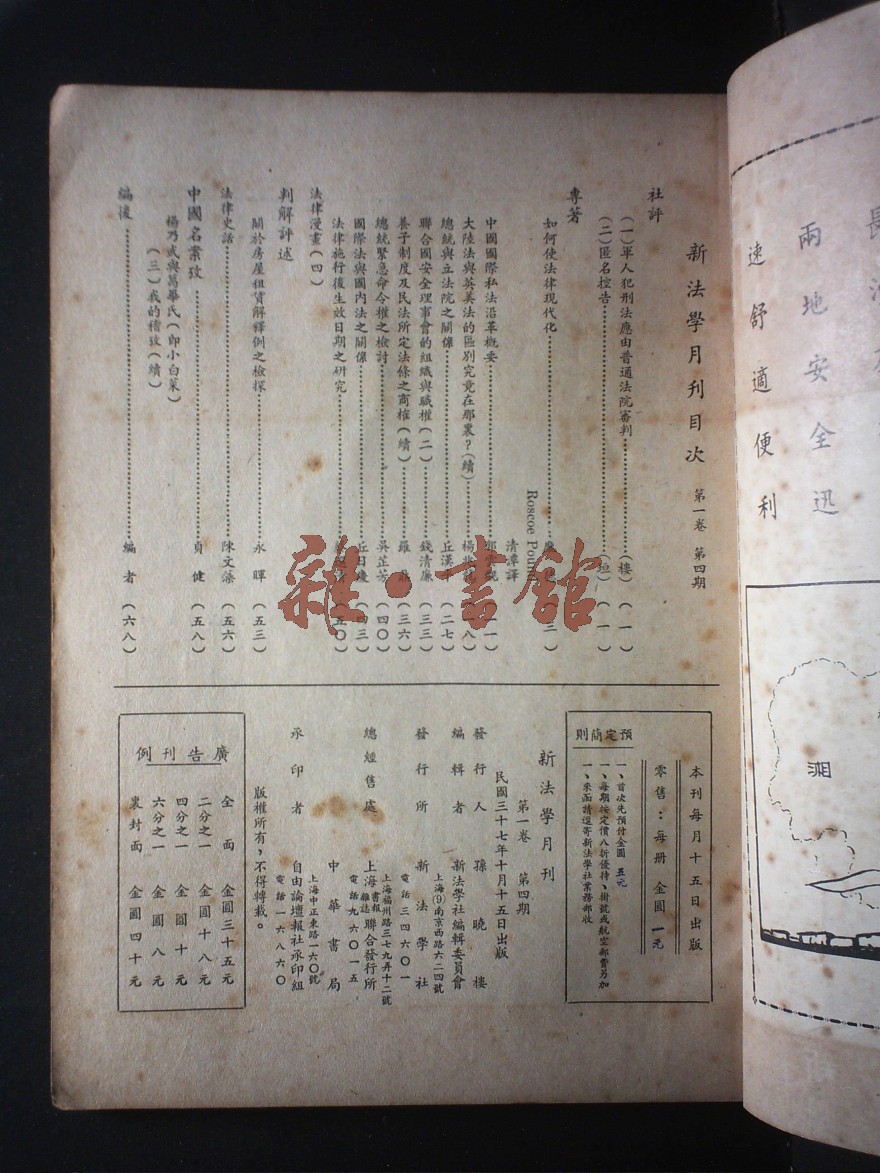 新法學月刊目次 第一卷 第四期
社評
(一)軍人犯刑法應由普通法院審判 (樓) (一)
(二)匿名控告 (一)
專著
如何使法律現代化 Roscoe 清潭譯
中國國際私法沿革概要
大陸法與英美法的區別究竟在那裏?(續)
總統與立法院之關係 丘漢 (二七)
聯合國安全理事會的組織與職權(二) 錢清廉 (三三)
養子制度及民法所定法條之商榷(續) 羅鼎 (三六)
總統緊急命令權之檢討 吳芷芳 (四〇)
國際法與國內法之關係 丘日慶 (四三)
法律施行後生效日期之研究 (五〇)
法律漫畫(四)
判解評述
關於房屋租賃解釋例之檢探 永暉 (五三)
法律史話 陳文藻 (五六)
中國名案攷 貞健 (五八)
楊乃武與葛畢氏(卽小白菜)
(三)我的稽攷(續)
編後 編者 (六八)
本刊每月十五日出版
零售:每册 金圓 一元
預定簡則
一、首次先預付金圓 五元
一、每期按定價八折優待、掛號或航空郵費另加
一、來函請逕寄新法學社業務部收
新法學月刊
第一卷 第四期
民國三十七年十月十五日出版
發行人 孫曉樓
編輯者 新法學社編輯委員會
上海(9)南京西路六二四號
發行所 新法學社
電話三四六〇一
上海福州路三七九弄十二號
總經售處 上海書報雜誌聯合發行所
電話九六〇一五
中華書局
上海中正東路一六〇號
承印者 自由論壇報社承印組
電話一六八六〇
版權所有,不得轉載。
廣告刊例
全面 金圓三十五元
二分之一 金圓十八元
四分之一 金圓十元
六分之一 金圓八元
裏封面 金圓四十元
雜·書館
兩地安全迅
速舒適便利
湘